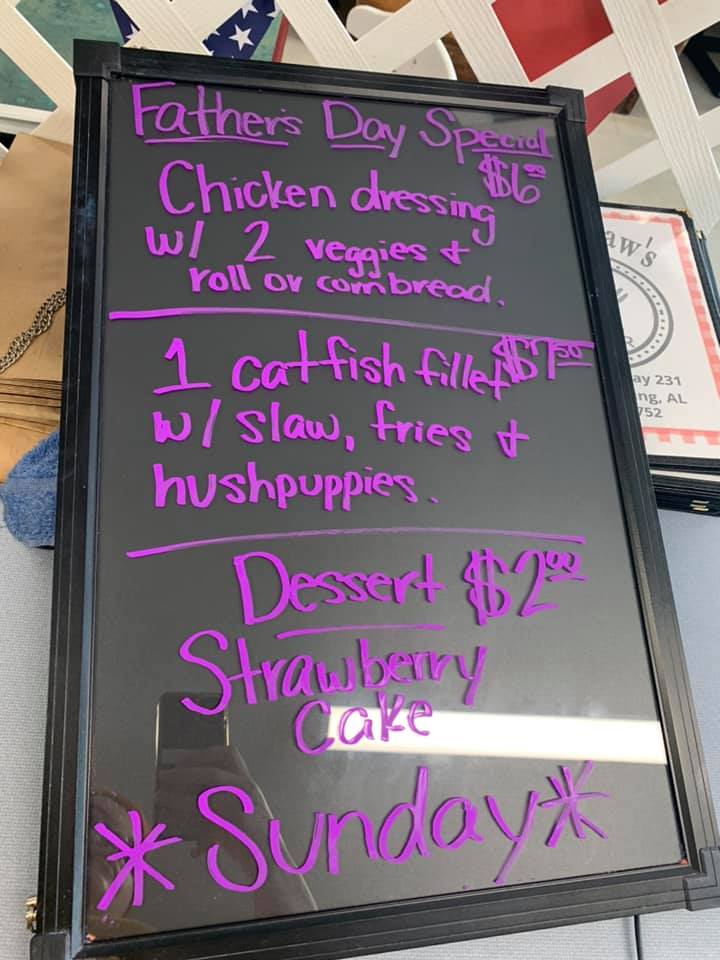 Father's Day Special
$6.00
Chicken dressing
w/ 2 veggies &
roll or cornbread.
1 catfish fillet $7.50
w/ slaw, fries &
hushpuppies.
Dessert $2.00
Strawberry
Cake
*Sunday*
aw's
R
ay 231
ng, AL
752